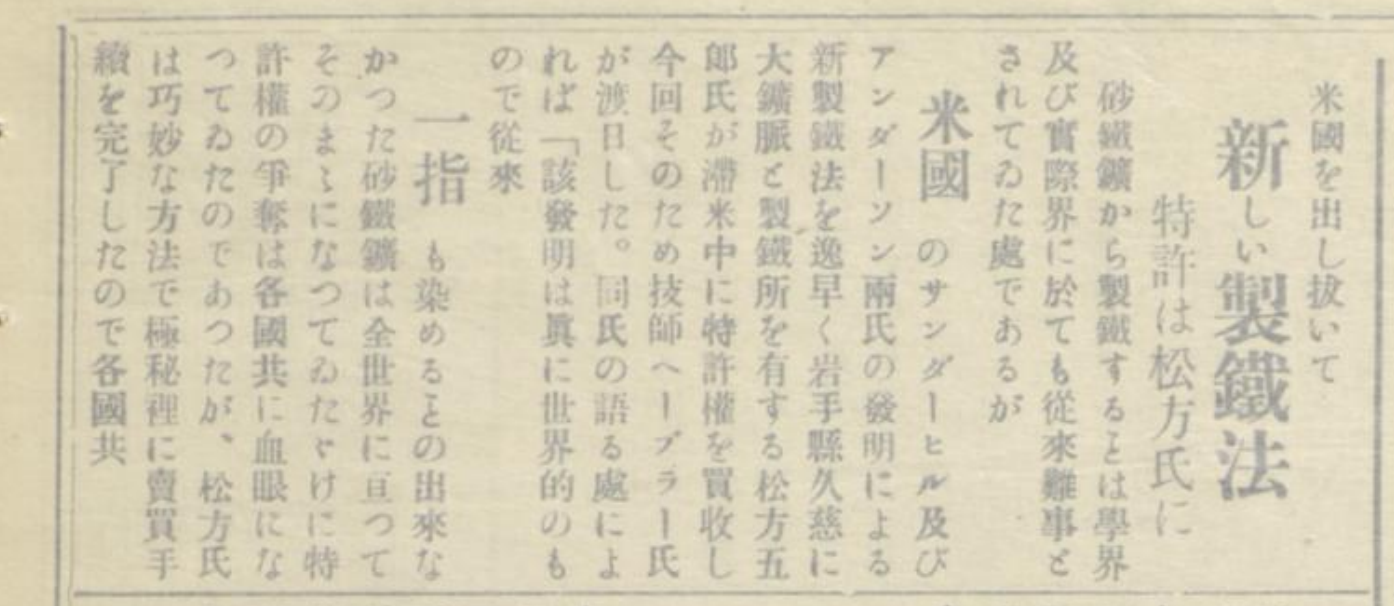 米國を出し拔いて
新しい製鐵法
特許は松方氏に
砂鐵鑛から製鐵するとは學界
及び實際界に於ても從來難事と
されてゐた處であるが
米國のサンダーヒル及び
アンダーソン兩氏の發明による
新製鐵法を逸早く岩手縣久慈に
大鑛脈と製鐵所を有する松方五
郎氏が滯米中に特許權を買收し
今回そのため技師ヘーブラー氏
が渡日した。同氏の語る處によ
れば「該發明は眞に世界的のも
ので從來
一指も染めるとの出來な
かつた砂鐵鑛は全世界に亘つて
そのまゝになつてゐたゞけに特
許權の爭奪は各國共に血眼にな
つてゐたのであつたが、松方氏
は巧妙な方法で極秘裡に賣買手
續を完了したので各國共